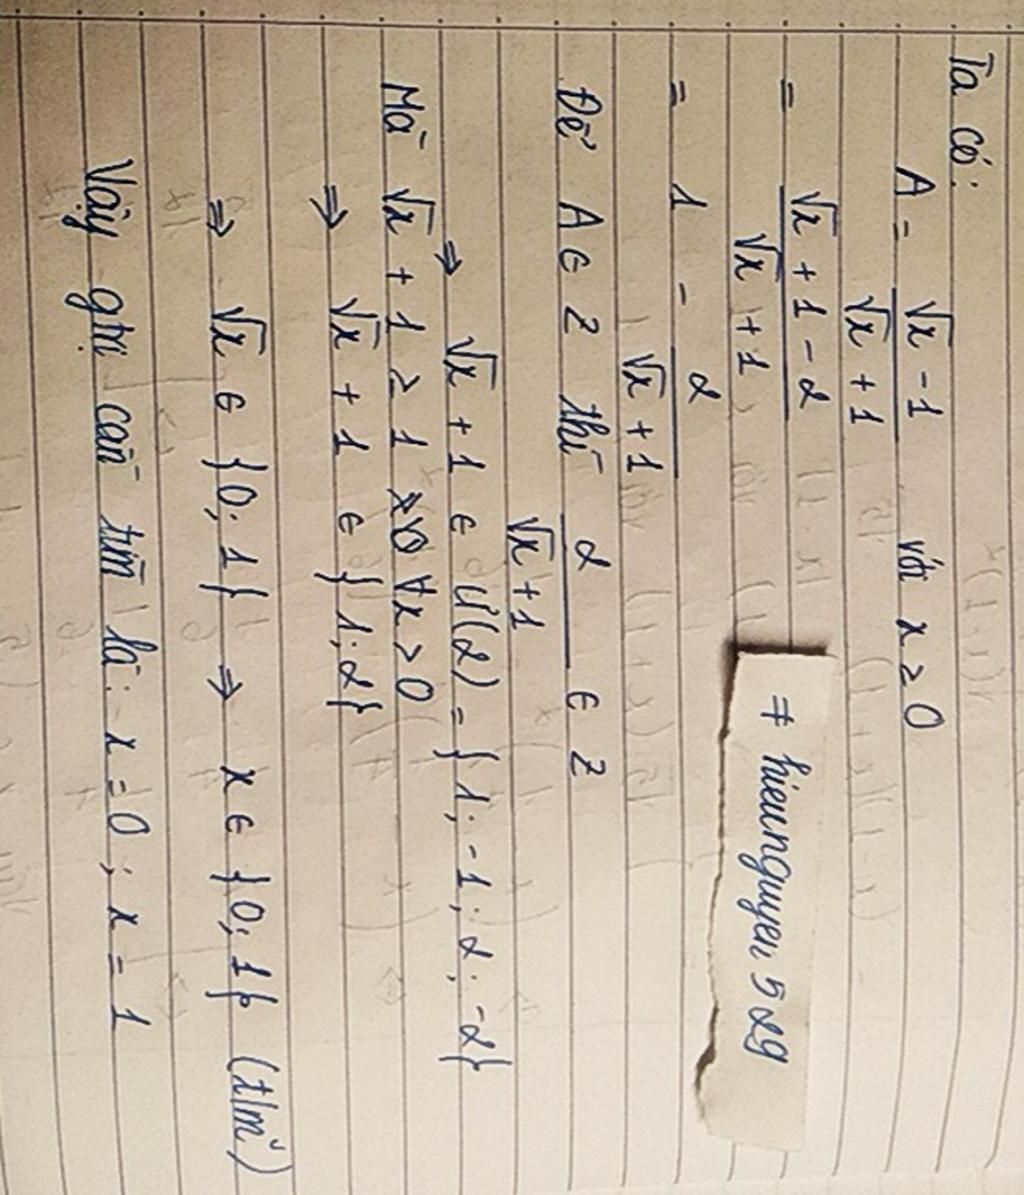 Ta có:
A = \frac{√x - 1}{√x + 1} với x ≥ 0
= \frac{√x + 1 - 2}{√x + 1}
≠ hieunguyen 529
= 1 - \frac{2}{√x + 1}
Để A ∈ Z thì \frac{2}{√x + 1} ∈ Z
⇒ √x + 1 ∈ Ư(2) = {1; -1; 2; -2}
Mà √x + 1 ≥ 1 ∀x ≥ 0
⇒ √x + 1 ∈ {1; 2}
⇒ √x ∈ {0; 1} ⇒ x ∈ {0; 1} (t/m)
Vậy gtrị cần tìm là: x = 0; x = 1